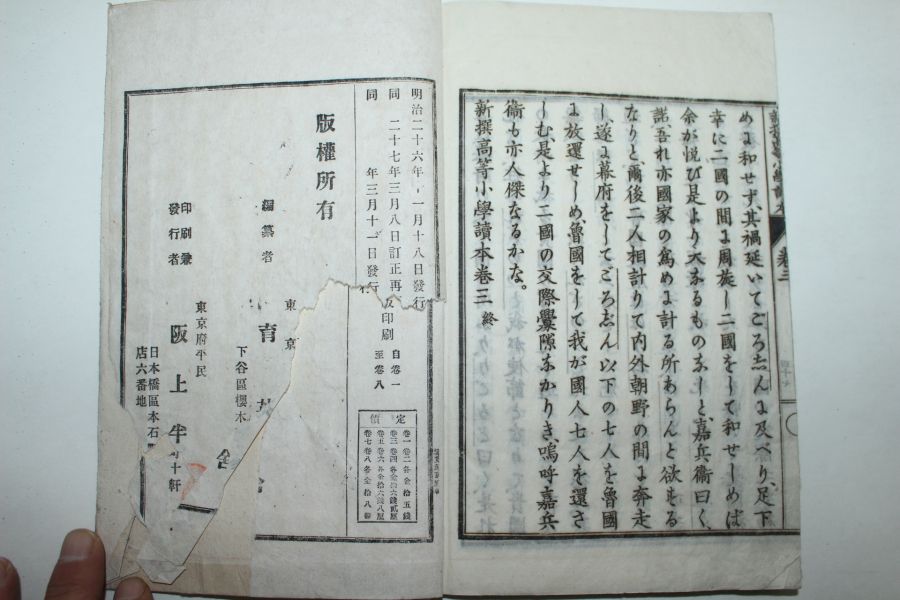 めに和せず、其禍延いてごろ志んに及べり、足下
幸に二國の間に周旋し二國をして和せしめば
余が悦び是より大なるものなしと、嘉兵衞曰く、
諾吾れ亦國家の爲めに計る所あらんと欲する
なりと爾後二人相計りて内外朝野の間に奔走
し、遂に幕府をしてごろ志ん以下の七人を魯國
に放還せしめ、魯國をして我が國人七人を還さ
しむ、是より二國の交際釁隙なかりき、嗚呼嘉兵
衞も亦人傑なるかな。
新撰高等小學讀本卷三 終
卷三
明治二十六年 一月十八日發行
同 二十七年三月八日訂正再版印刷
同 年三月十一日發行
自卷一
至卷八
定價
卷一卷二各金拾五錢
卷三卷四各金拾六錢貳厘
卷五卷六各金拾六錢八厘
卷七卷八各金拾八錢
版權所有
編纂者
東京
下谷區櫻木
育
東京府平民
印刷兼
發行者
阪上半
日本橋區本石
店六番地
十軒